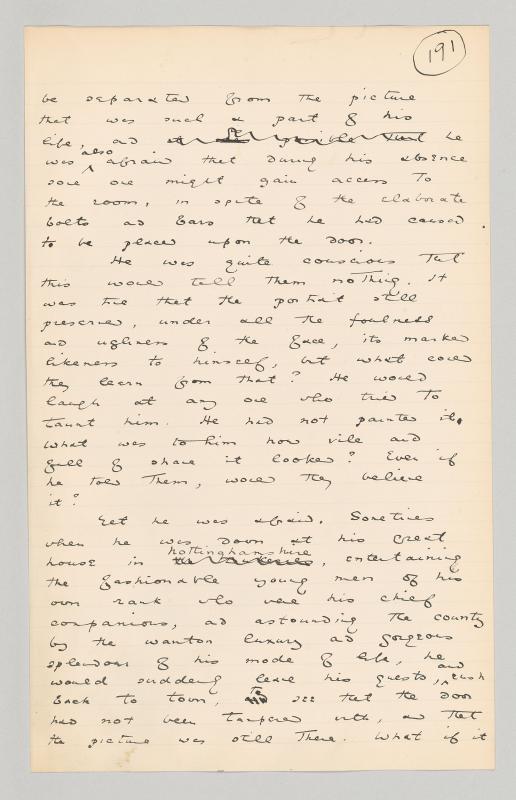 191
be separated from the picture
that was such a part of his
life, and he
was also afraid that during his absence
some one might gain access to
the room, in spite of the elaborate
bolts and bars that he had caused
to be placed upon the door.
He was quite conscious that
this would tell them nothing. It
was true that the portrait still
preserved, under all the foulness
and ugliness of the face, its marked
likeness to himself, but what could
they learn from that? He would
laugh at any one who tried to
taunt him. He had not painted it.
What was to him how vile and
full of shame it looked? Even if
he told them, would they believe
it?
Yet he was afraid. Sometimes
when he was down at his great
house in Nottinghamshire, entertaining
the fashionable young men of his
own rank who were his chief
companions, and astounding the county
by the wanton luxury and gorgeous
splendour of his mode of life, he
would suddenly leave his guests, and rush
back to town, to see that the door
had not been tampered with, and that
the picture was still there. What if it